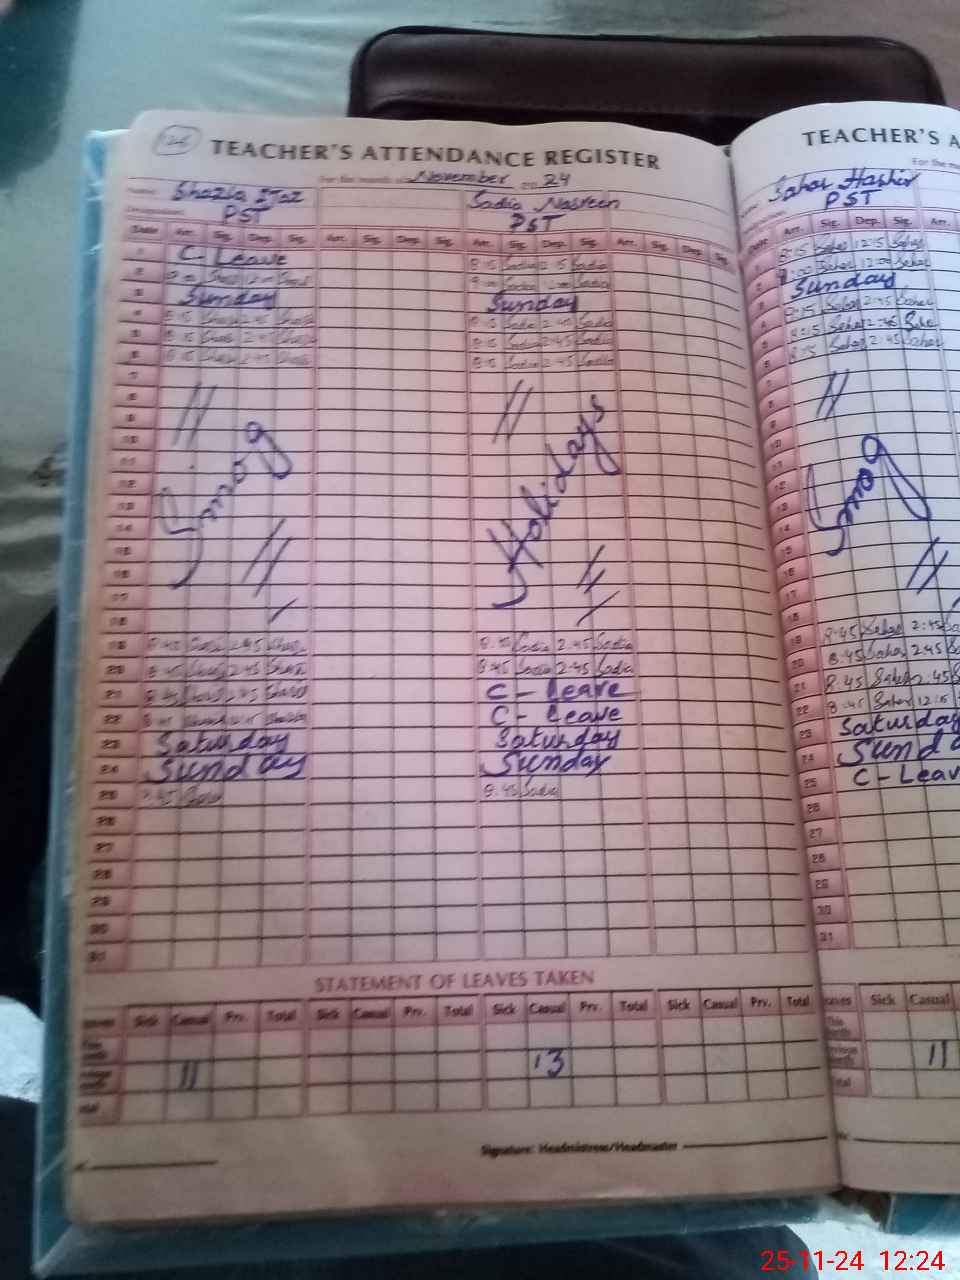 126
TEACHER'S ATTENDANCE REGISTER
For the month of November 24
Name Shazia Ijaz Sadia Nasreen
Designation PST PST
Date Arr. Sig. Dep. Sig. Arr. Sig. Dep. Sig. Arr. Sig. Dep. Sig. Arr. Sig. Dep. Sig.
1 C-Leave 8:15 Sadia 12:15 Sadia
2 9:00 12:00 9:00 Sadia 12:00 Sadia
3 Sunday Sunday
4 8:15 2:45 8:15 Sadia 2:45 Sadia
5 8:15 2:45 8:15 Sadia 2:45 Sadia
6 8:15 2:45 8:15 Sadia 2:45 Sadia
7
8 // //
9
10
11
12
13 Smog Holidays
14
15
16 // //
17
18 / /
19 8:45 2:45 8:45 Sadia 2:45 Sadia
20 8:45 2:45 8:45 Sadia 2:45 Sadia
21 8:45 2:45 C-Leave
22 8:45 12:15 C-Leave
23 Saturday Saturday
24 Sunday Sunday
25 8:45 8:45 Sadia
26
27
28
29
30
31
STATEMENT OF LEAVES TAKEN
Leaves Sick Casual Prv. Total Sick Casual Prv. Total Sick Casual Prv. Total Sick Casual Prv. Total
This month
Previous month 11 13
Total
Signature: Headmistress/Headmaster
TEACHER'S A
For the m
Sahar Hashir
PST
Date Arr. Sig. Dep. Sig. Arr.
1 8:15 Sahar 12:15 Sahar
2 9:00 Sahar 12:00 Sahar
3 Sunday
4 8:15 Sahar 2:45 Sahar
5 8:15 Sahar 2:45 Sahar
6 8:15 Sahar 2:45 Sahar
7
8 //
9
10
11
12
13 Smog
14
15
16 //
17
18
19 8:45 Sahar 2:45
20 8:45 Sahar 2:45
21 8:45 Sahar 2:45
22 8:45 Sahar 12:15
23 Saturday
24 Sunday
25 C-Leav
26
27
28
29
30
31
Leaves Sick Casual
This month
Previous month 11
Total
25-11-24 12:24